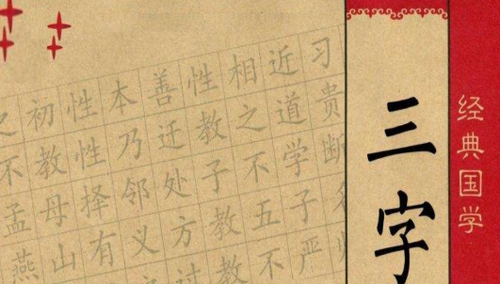 之初性本善性相近习
不教性乃迁教之道贵
孟母择邻处子不学断
燕山有义方教五子
过教不严
三字
经典国学